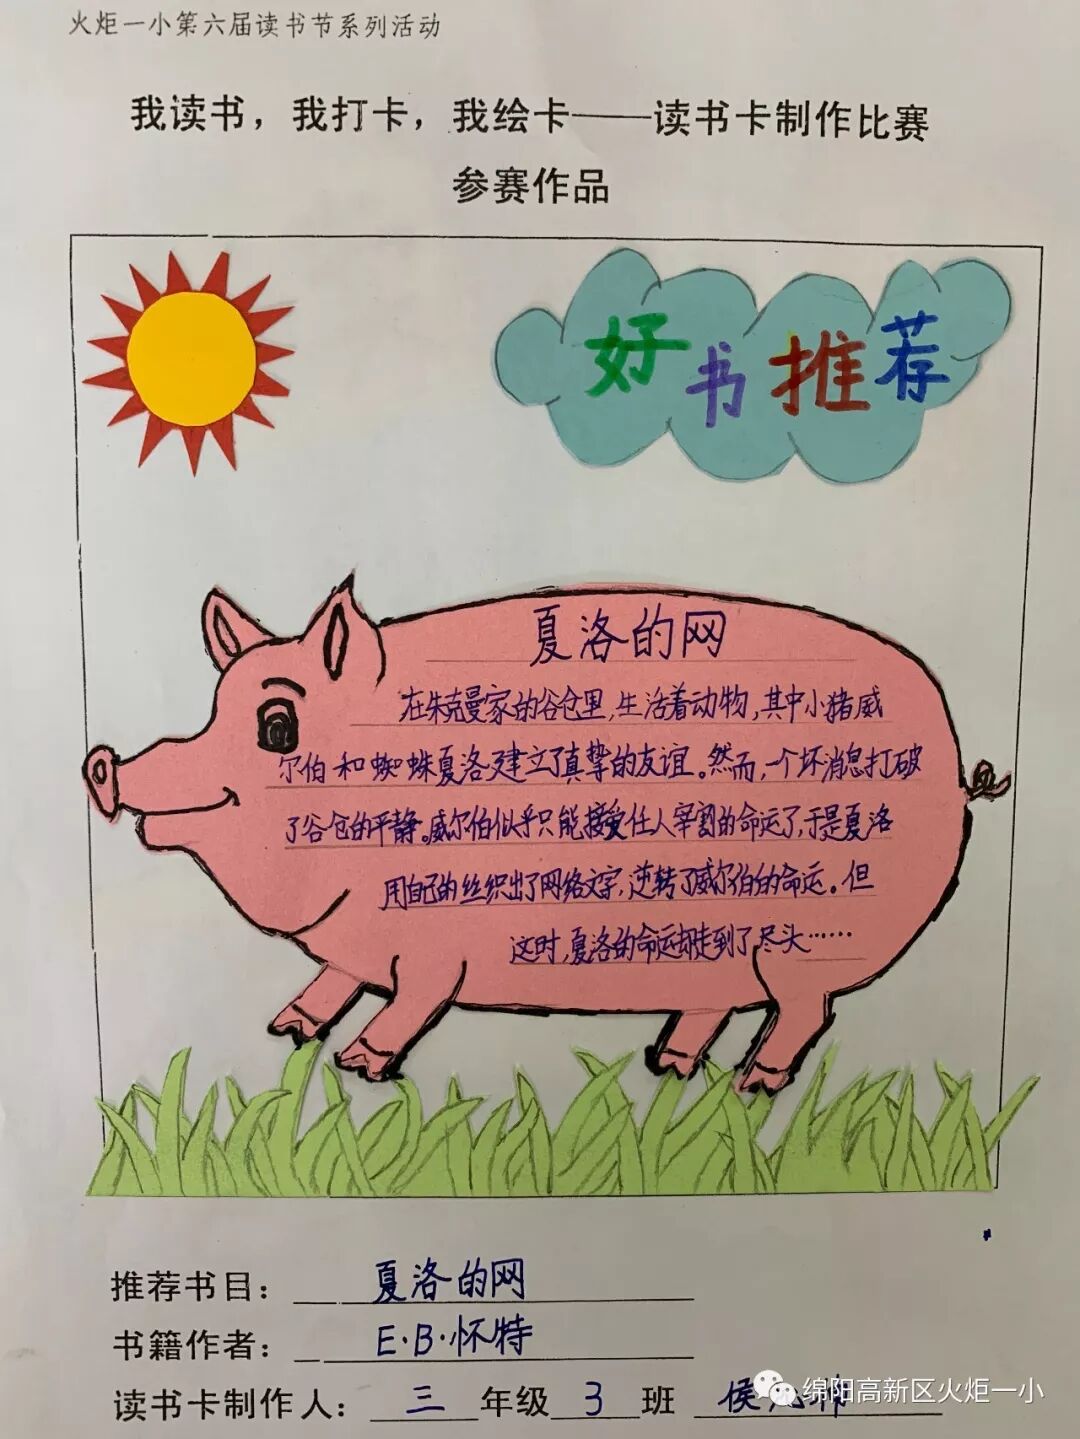 火炬一小第六届读书节系列活动
我读书，我打卡，我绘卡——读书卡制作比赛
参赛作品
好书推荐
夏洛的网
在朱克曼家的谷仓里,生活着动物,其中小猪威
尔伯和蜘蛛夏洛建立了真挚的友谊。然而,一个坏消息打破
了谷仓的平静。威尔伯似乎只能接受任人宰割的命运了,于是夏洛
用自己的丝织出了网络文字,逆转了威尔伯的命运。但
这时,夏洛的命运却走到了尽头……
推荐书目：夏洛的网
书籍作者：E·B·怀特
读书卡制作人：三年级3班 侯
绵阳高新区火炬一小